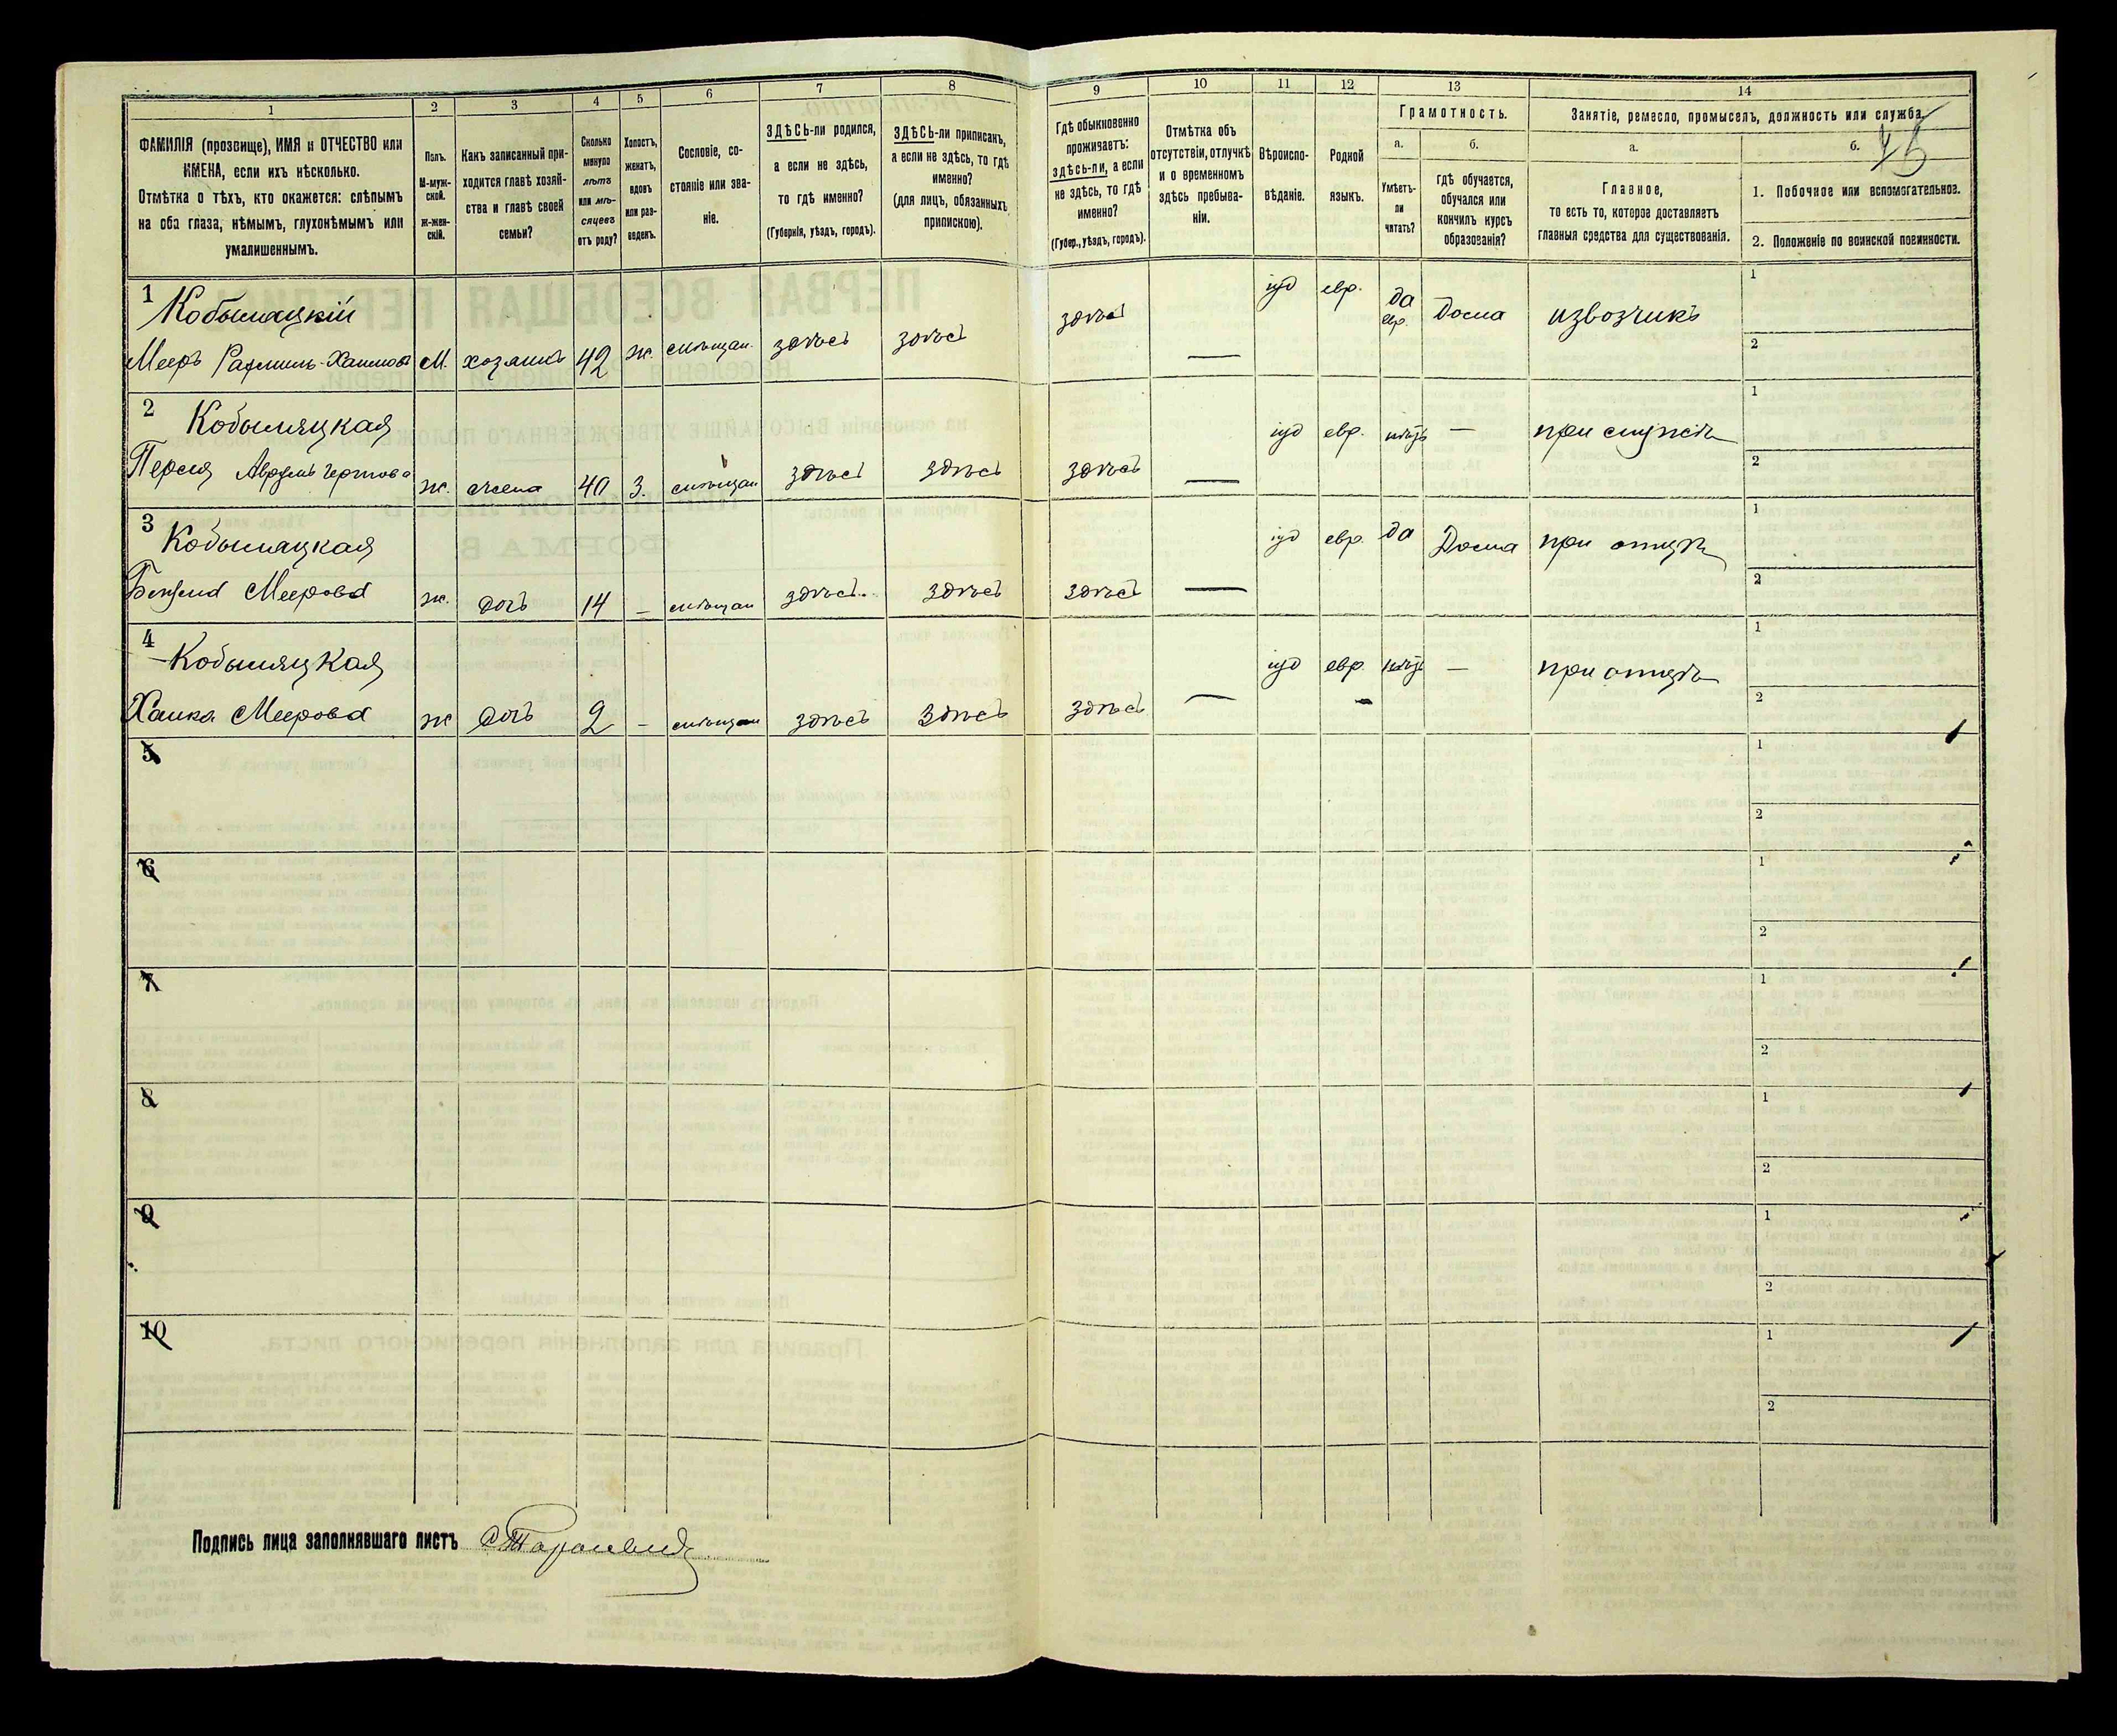 1 2 3 4 5 6 7 8 9 10 11 12 13 14
ФАМИЛІЯ (прозвище), ИМЯ и ОТЧЕСТВО или
ИМЕНА, если ихъ нѣсколько.
Отмѣтка о тѣхъ, кто окажется: слѣпымъ
на оба глаза, нѣмымъ, глухонѣмымъ или
умалишеннымъ.
Полъ.
М-муж-
ской.
ж-жен-
скій.
Какъ записанный при-
ходится главѣ хозяй-
ства и главѣ своей
семьи?
Сколько
минуло
лѣтъ
или мѣ-
сяцевъ
отъ роду?
Холостъ,
женатъ,
вдовъ
или раз-
веденъ.
Сословіе, со-
стояніе или зва-
ніе.
ЗДѢСЬ-ли родился,
а если не здѣсь,
то гдѣ именно?
(Губернія, уѣздъ, городъ).
ЗДѢСЬ-ли приписанъ,
а если не здѣсь, то гдѣ
именно?
(для лицъ, обязанныхъ
припискою).
Гдѣ обыкновенно
проживаетъ:
здѣсь-ли, а если
не здѣсь, то гдѣ
именно?
(Губер., уѣздъ, городъ).
Отмѣтка объ
отсутствіи, отлучкѣ
и о временномъ
здѣсь пребыва-
ніи.
Вѣроиспо-
вѣданіе.
Родной
языкъ.
Грамотность.
а.
Умѣетъ-
ли
читать?
б.
гдѣ обучается,
обучался или
кончилъ курсъ
образованія?
Занятіе, ремесло, промыселъ, должность или служба.
а.
Главное,
то есть то, которое доставляетъ
главныя средства для существованія.
б.
1. Побочное или вспомогательное.
2. Положеніе по воинской повинности.
1 Кобыляцкій іуд евр. да евр. Дома извозчикъ 1
Мееръ Хаимовъ М. хозяинъ 42 ж. мѣщан. здѣсь здѣсь здѣсь — 2
2 Кобыляцкая іуд евр. нѣтъ — при мужѣ 1
ж. жена 40 З. мѣщан здѣсь здѣсь здѣсь — 2
3 Кобыляцкая іуд евр. да Дома при отцѣ 1
Меерова ж. дочь 14 – мѣщан здѣсь. здѣсь здѣсь — 2
4 Кобыляцкая іуд евр. нѣтъ — при отцѣ 1
Ханка Меерова ж дочь 2 – мѣщан здѣсь здѣсь здѣсь — 2
5 1
2
6 1
2
7 1
2
8 1
2
9 1
2
10 1
2
Подпись лица заполнявшаго листъ